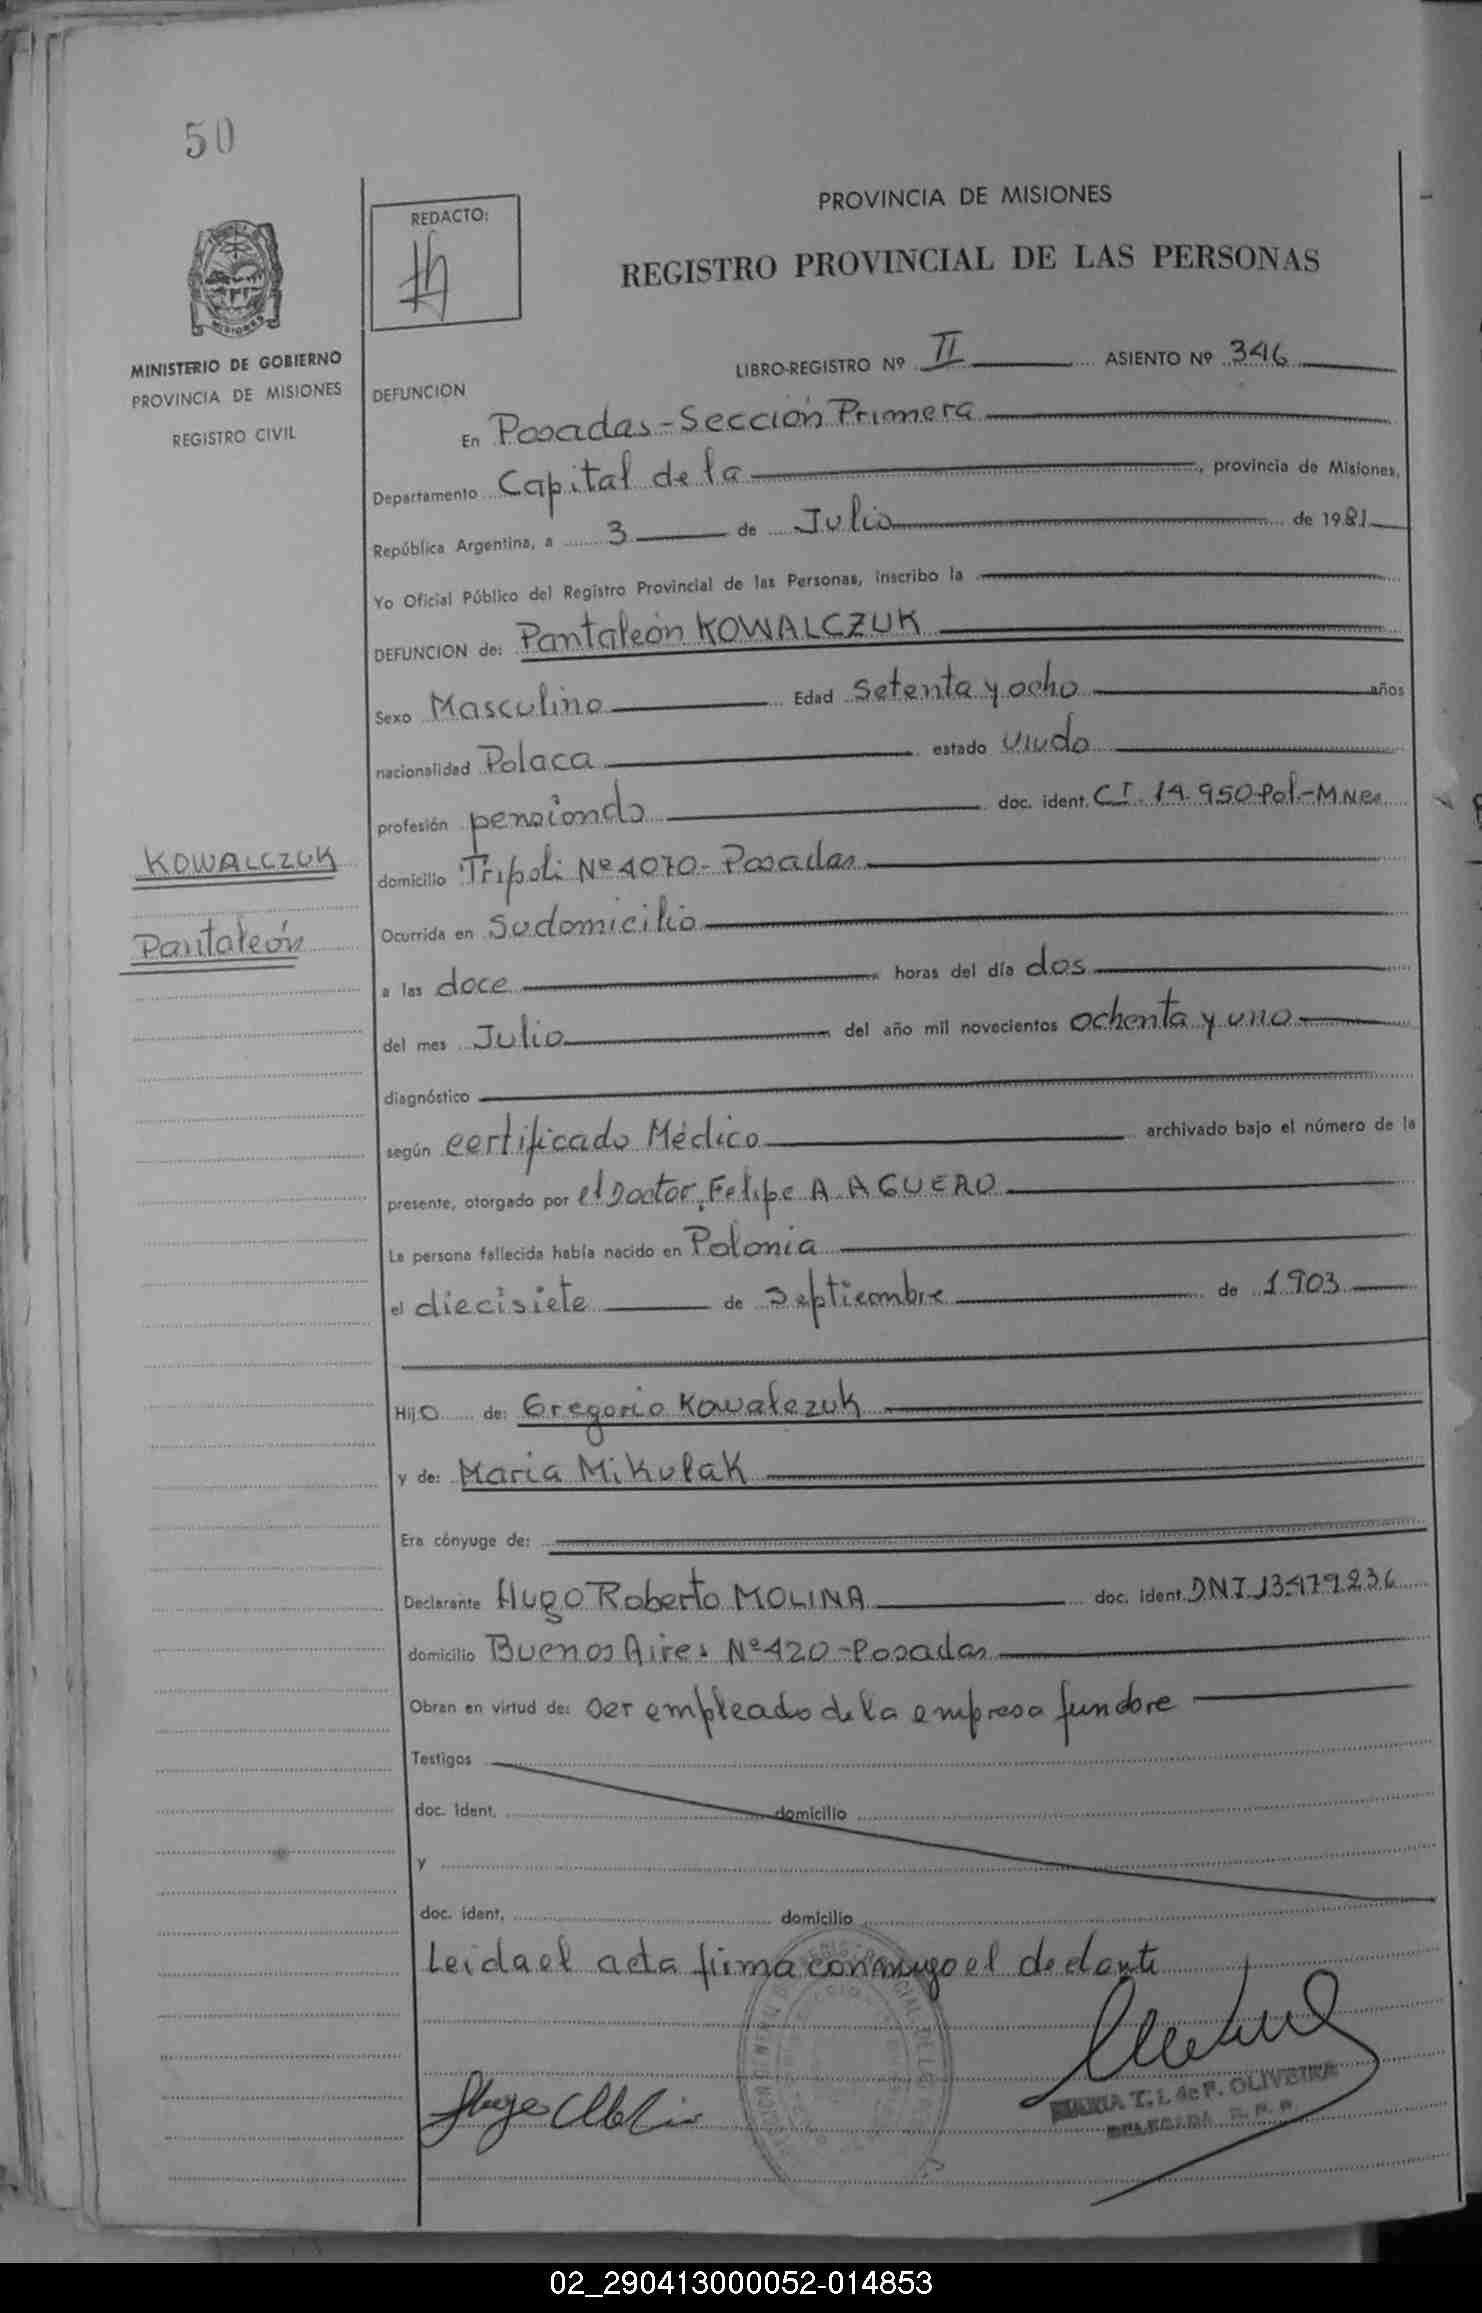 50
REDACTO:
PROVINCIA DE MISIONES
REGISTRO PROVINCIAL DE LAS PERSONAS
MISIONES
MINISTERIO DE GOBIERNO
PROVINCIA DE MISIONES
REGISTRO CIVIL
LIBRO-REGISTRO Nº II ASIENTO Nº 346
DEFUNCION
En Posadas-Sección Primera
Departamento Capital de la, provincia de Misiones,
República Argentina, a 3 de Julio de 1981
Yo Oficial Público del Registro Provincial de las Personas, inscribo la
DEFUNCION de: Pantaleón KOWALCZUK
Sexo Masculino Edad Setenta y ocho años
nacionalidad Polaca estado Viudo
profesión pensiondo doc. ident. C.I. 14.950-Pol.-Mnes
KOWALCZUK
domicilio Tripoli Nº 4070-Posadas
Pantaleón
Ocurrida en Su domicilio
a las doce horas del día dos
del mes Julio del año mil novecientos ochenta y uno
diagnóstico
según certificado Médico archivado bajo el número de la
presente, otorgado por el Doctor, Felipe A. AGUERO
La persona fallecida había nacido en Polonia
el diecisiete de Septiembre de 1903
Hijo de: Gregorio Kowalczuk
y de: Maria Mikulak
Era cónyuge de:
Declarante Hugo Roberto MOLINA doc. ident. DNI 13.479.236
domicilio Buenos Aires Nº 420-Posadas
Obran en virtud de: ser empleado de la empresa fundore
Testigos
doc. ident. domicilio
y
doc. ident. domicilio
Leida el acta firma conmigo el declante
MARIA T. L. de F. OLIVEIRA
DELEGADA R. P. P.
02_290413000052-014853